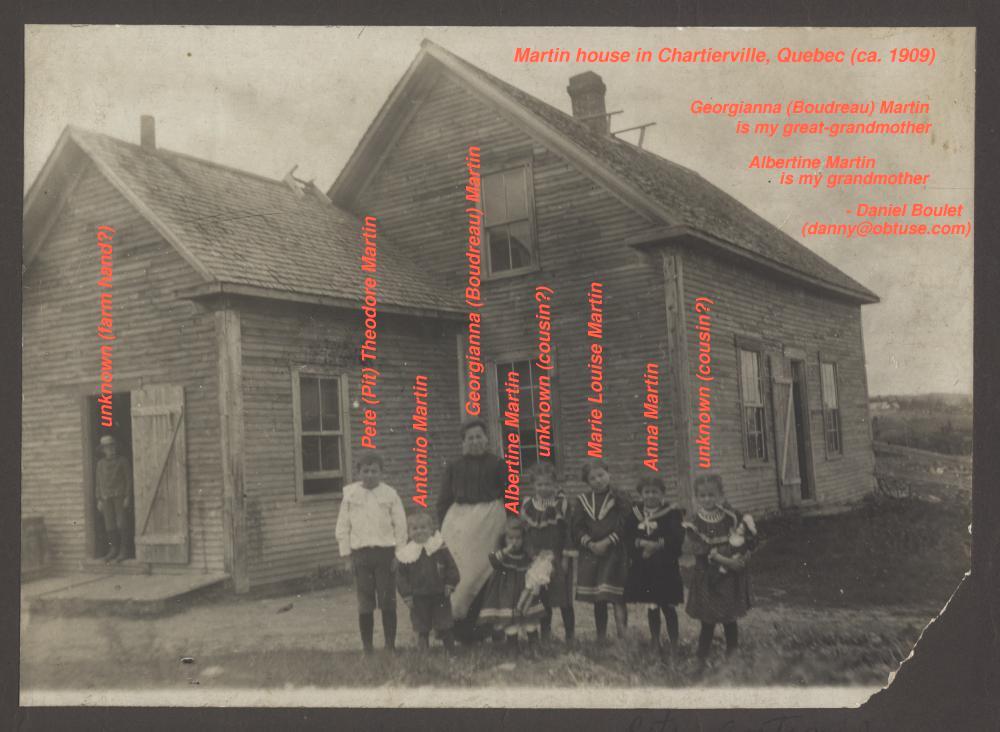 Martin house in Chartierville, Quebec (ca. 1909)
Georgianna (Boudreau) Martin
is my great-grandmother
Albertine Martin
is my grandmother
- Daniel Boulet
(danny@obtuse.com)
unknown (farm hand?)
Pete (Pit) Theodore Martin
Antonio Martin
Georgianna (Boudreau) Martin
Albertine Martin
unknown (cousin?)
Marie Louise Martin
Anna Martin
unknown (cousin?)